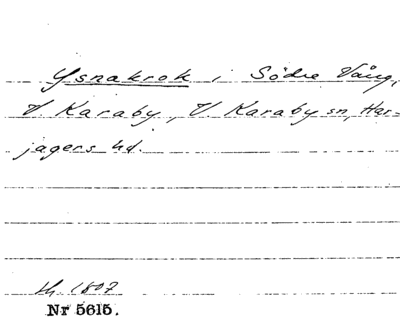 Ysnakrok i Södre Vång,
V. Karaby, V. Karaby sn, Har-
jagers hd.
sk. 1807
Nr 5615.